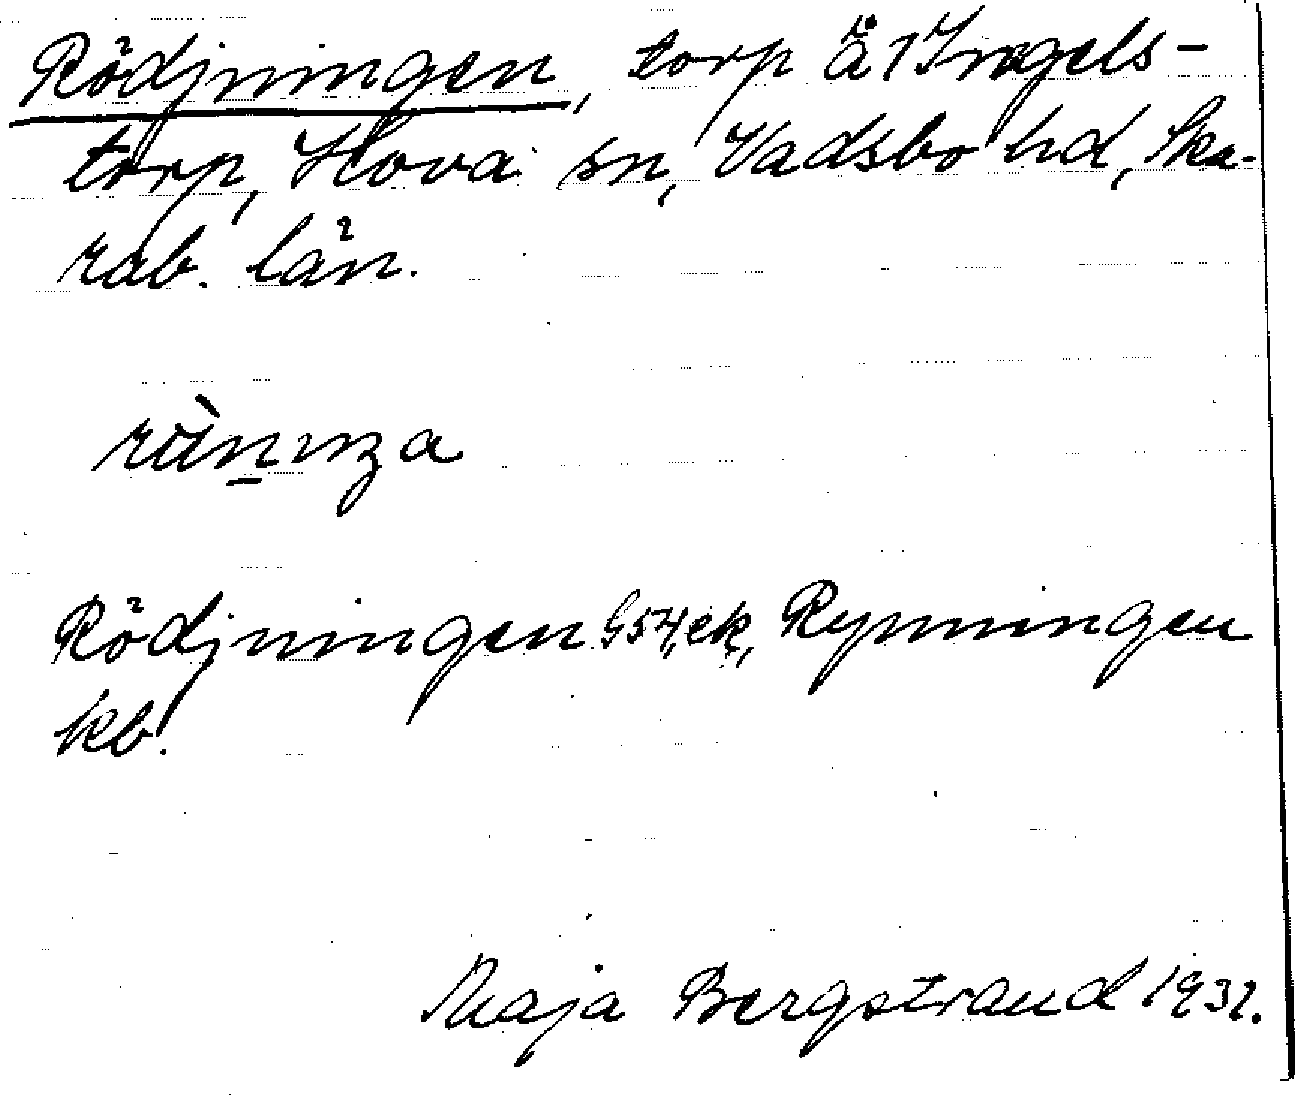 Rödjningen, torp Ä 1 Ingels-
torp, Hova sn, Vadsbo hd, Ska-
rab. län.
Rödjningen G54, ek, Rynningen
kb.
Maja Bergstrand 1932.